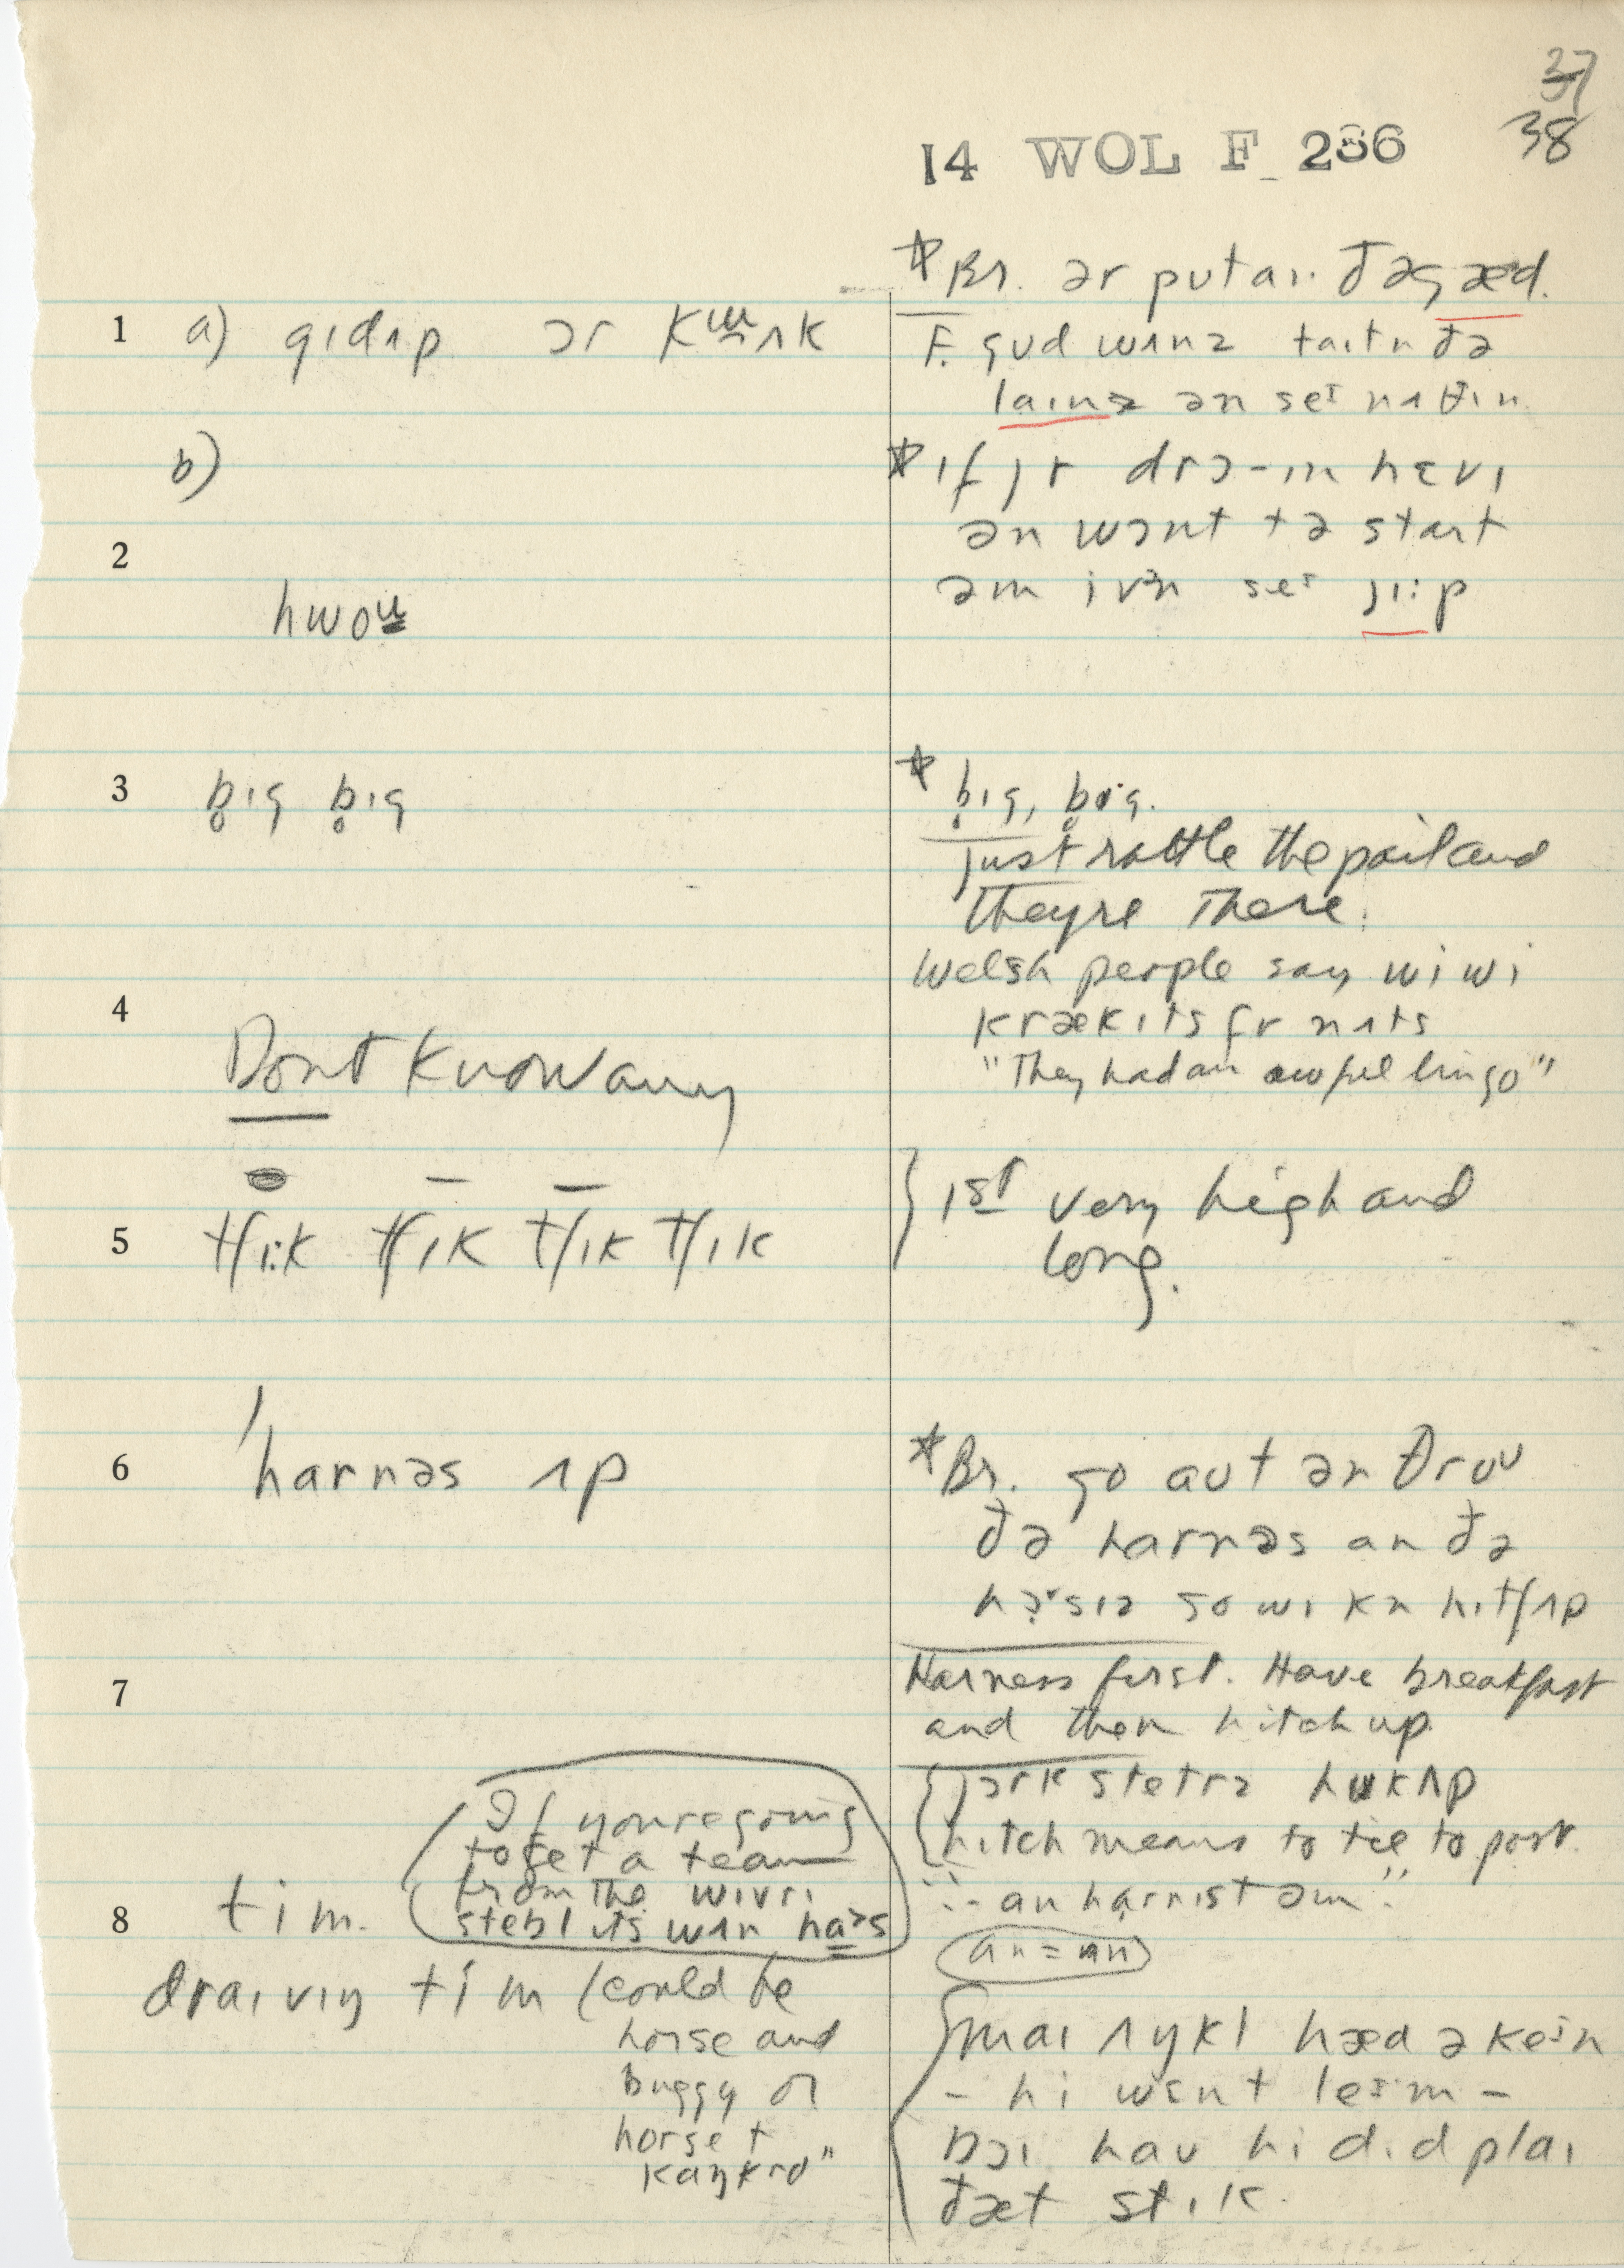 37
38
14 WOL F 236
1 a) gɪdʌp ɔr kɯʌk
b)
2
hwou
3 b̥ɪg b̥ɪg
4
Dont know any
5 tʃɪ:k tʃɪk tʃɪk tʃɪk
6 'harnəs ʌp
7
If youre going
to get a team
from the wɪvrɪ
stebl ɪts wʌn
8 tim.
draɪvɪŋ tim (could be
horse and
buggy or
horse +
* Br. ər putaɪ. ðəgæd.
F. gud wʌnz taɪtn ðə
laɪnz ən seɪ nʌθɪn.
* ɪf jr drɔ-ɪn hɛvɪ
ən wɔnt tə start
əm ivn seɪ jɪ:p
* b̥ɪg, b̥ɪg.
just rattle the pail and
theyre there.
Welsh people say wi wi
krækɪts fr nʌts
"They had an awful lingo"
1st very high and
long.
* Br. go aut ən θru
ðə harnəs an ðə
so wɪ kn hɪtʃʌp
Harness first. Have breakfast
and then hitch up
jɔrk stetrz hukʌp
hitch means to tie to post.
"- an harnɪst əm"
an =
maɪ ʌŋkl hæd ə keɪn
- hi wɛnt leɪm -
bɔɪ hau hi dɪd plaɪ
ðæt stɪk